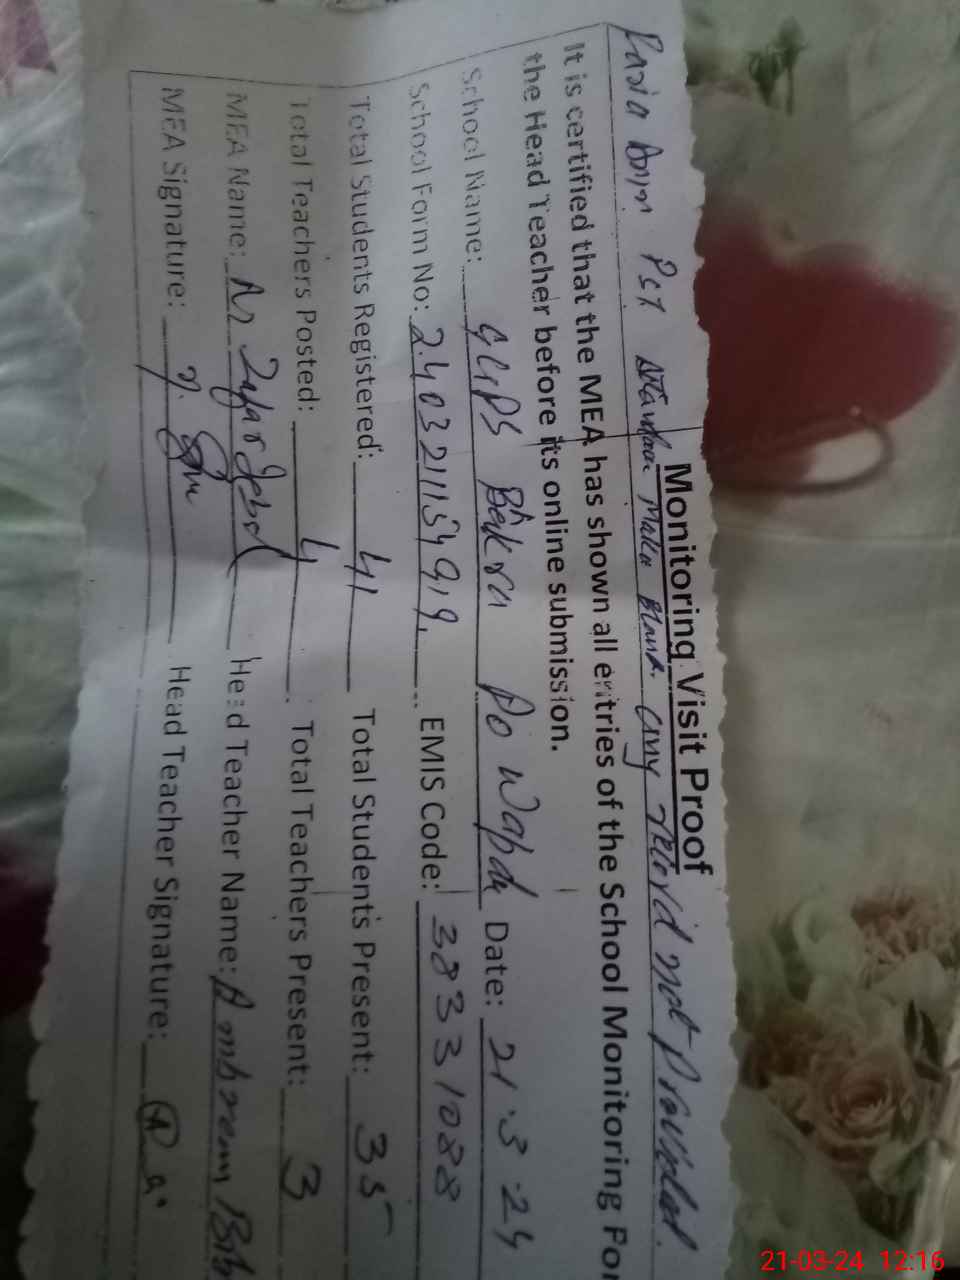 Monitoring Visit Proof
Pst any record not Provided.
It is certified that the MEA has shown all entries of the School Monitoring Por
the Head Teacher before its online submission.
School Name: GGPS Bhakra Po Wapda Date: 21.3.24
School Form No: 2.403211154919. EMIS Code: 38331088
Total Students Registered: 41 Total Students Present: 35
Total Teachers Posted: 4 Total Teachers Present: 3
MEA Name: Zafar Iqbal Head Teacher Name: Ambreen Bib
MEA Signature: Head Teacher Signature:
21-03-24 12:16